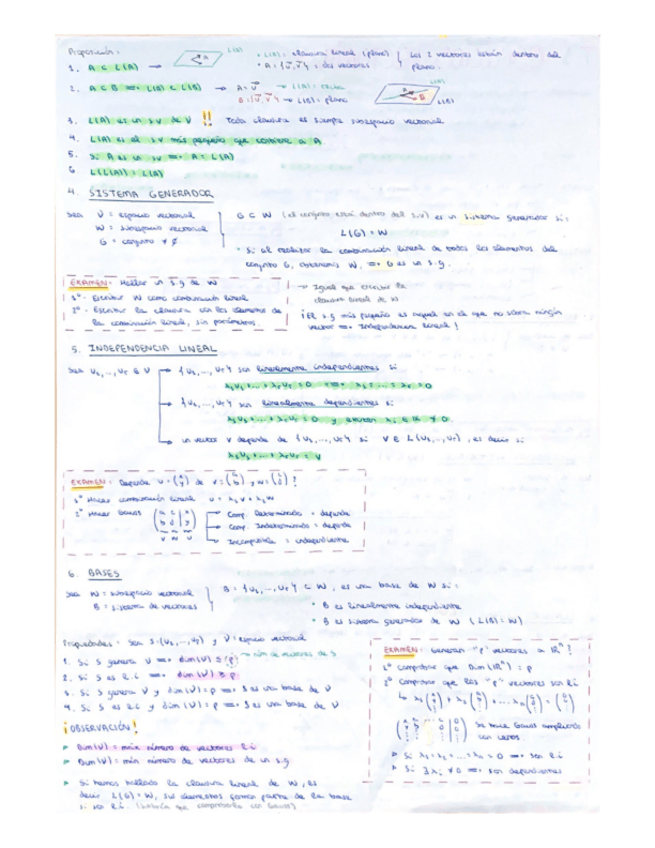 Proposición:
1. A ⊂ L(A) → L(A) • L(A): clausura lineal (plano) Los 2 vectores están dentro del
• A = {u, v} : dos vectores plano.
2. A ⊂ B ⟹ L(A) ⊂ L(B) → A = L(A) =
B = {u, v} → L(B) = plano L(B)
3. L(A) es un s.v de V !! Toda clausura es siempre subespacio vectorial
4. L(A) es el s.v más pequeño que contiene a A
5. Si A es un s.v ⟹ A = L(A)
6. L(L(A)) = L(A)
4. SISTEMA GENERADOR
Sea V = espacio vectorial G ⊂ W (el conjunto está dentro del s.v) es un sistema generador si:
W = subespacio vectorial L(G) = W
G = conjunto ≠ ∅ • Si al realizar la combinación lineal de todos los elementos del
conjunto G, obtenemos W, ⟹ G es un s.g.
EXAMEN: Hallar un s.g de W → Igual que escribir la
1º. Escribir W como combinación lineal clausura lineal de W
2º. Escribir la clausura con los elementos de ¡El s.g más pequeño es aquel en el que no sobra ningún
la combinación lineal, sin parámetros. vector ⟹ Independencia lineal!
5. INDEPENDENCIA LINEAL
Sea u₁,...,uᵣ ∈ V {u₁,...,uᵣ} son linealmente independientes si
λ₁u₁+...+λᵣuᵣ = 0 ⟹ λ₁ = ... = λᵣ = 0
{u₁,...,uᵣ} son linealmente dependientes si
λ₁u₁+...+λᵣuᵣ = 0 y existen λᵢ ∈ ℝ ≠ 0
un vector v depende de {u₁,...,uᵣ} si v ∈ L(u₁,...,uᵣ), es decir si
λ₁u₁+...+λᵣuᵣ = v
EXAMEN: Depende u = de v = y w = !
1º Hacer combinación lineal u = λ₁v + λ₂w
2º Hacer Gauss Comp. Determinado = depende
Comp. Indeterminado = depende
v w u Incompatible = independiente
6. BASES
Sea W = subespacio vectorial B = {u₁,...,uᵣ} ⊂ W, es una base de W si:
B = sistema de vectores • B es linealmente independiente
• B es sistema generador de W (L(B) = W)
Propiedades: Sea S = {u₁,...,uᵣ} y V = espacio vectorial
1. Si S genera V ⟹ dim(V) ≤ p → núm de vectores de S
2. Si S es l.i ⟹ dim(V) ≥ p
3. Si S genera V y dim(V) = p ⟹ S es una base de V
4. Si S es l.i y dim(V) = p ⟹ S es una base de V
¡OBSERVACIÓN!
▸ Dim(V) = máx número de vectores l.i
▸ Dim(V) = mín número de vectores de un s.g
▸ Si hemos hallado la clausura lineal de W, es
decir L(G) = W, sus elementos forman parte de la base
si son l.i. (habría que comprobarlo con Gauss)
EXAMEN: Generan "p" vectores a ℝⁿ!
1º Comprobar que Dim(ℝⁿ) = p
2º Comprobar que los "p" vectores son l.i
Se hace Gauss ampliando
con ceros.
▸ Si λ₁ = λ₂ = ... = λₙ = 0 ⟹ son l.i
▸ Si ∃ λᵢ ≠ 0 ⟹ son dependientes